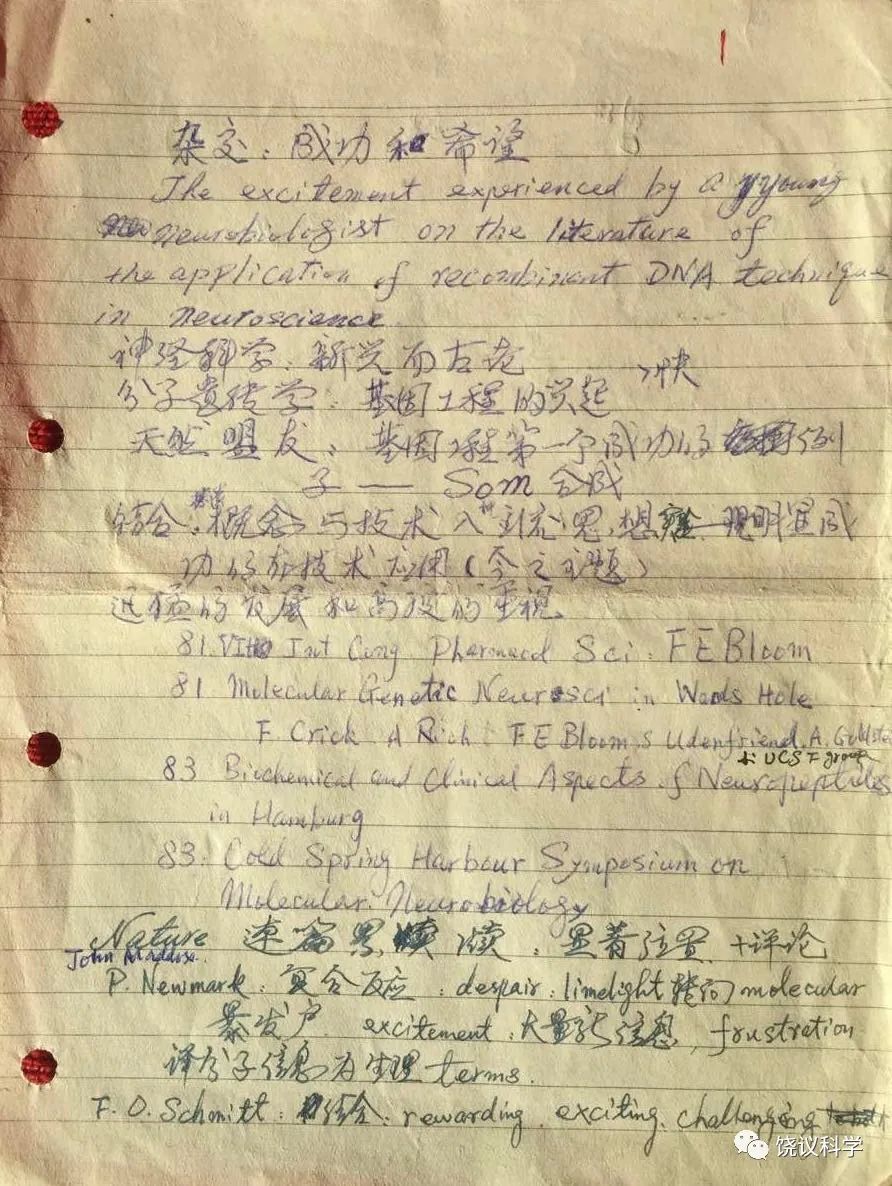 杂交：成功和希望
The excitement experienced by a young
neurobiologist on the literature of
the application of recombinent DNA technique
in neuroscience.
神经科学：新兴而古老
分子遗传学：基因工程的兴起 快
天然盟友：基因工程第一个成功的例
子 — Som 合成
结合：概念与技术
功的新技术应用（今之主题）
迅猛的发展和高度的重视
81. VIII Int Cong Pharmacol Sci: F E Bloom
81 Molecular Genetic Neurosci in Woods Hole
F. Crick A Rich F E Bloom, S Udenfriend, A. Goldste
UCSF group
83 Biochemical and Clinical Aspects of Neuropeptides
in Hamburg
83. Cold Spring Harbour Symposium on
Molecular Neurobiology
Nature 连篇累牍：显著位置+评论
John Maddox.
P. Newmark: 复合反应：despair: limelight 转向 molecular
暴发户. excitement: 大量新信息, frustration
译分子信息为生理 terms.
F. O. Schmitt: 结合: rewarding. exciting. challenging
饶议科学